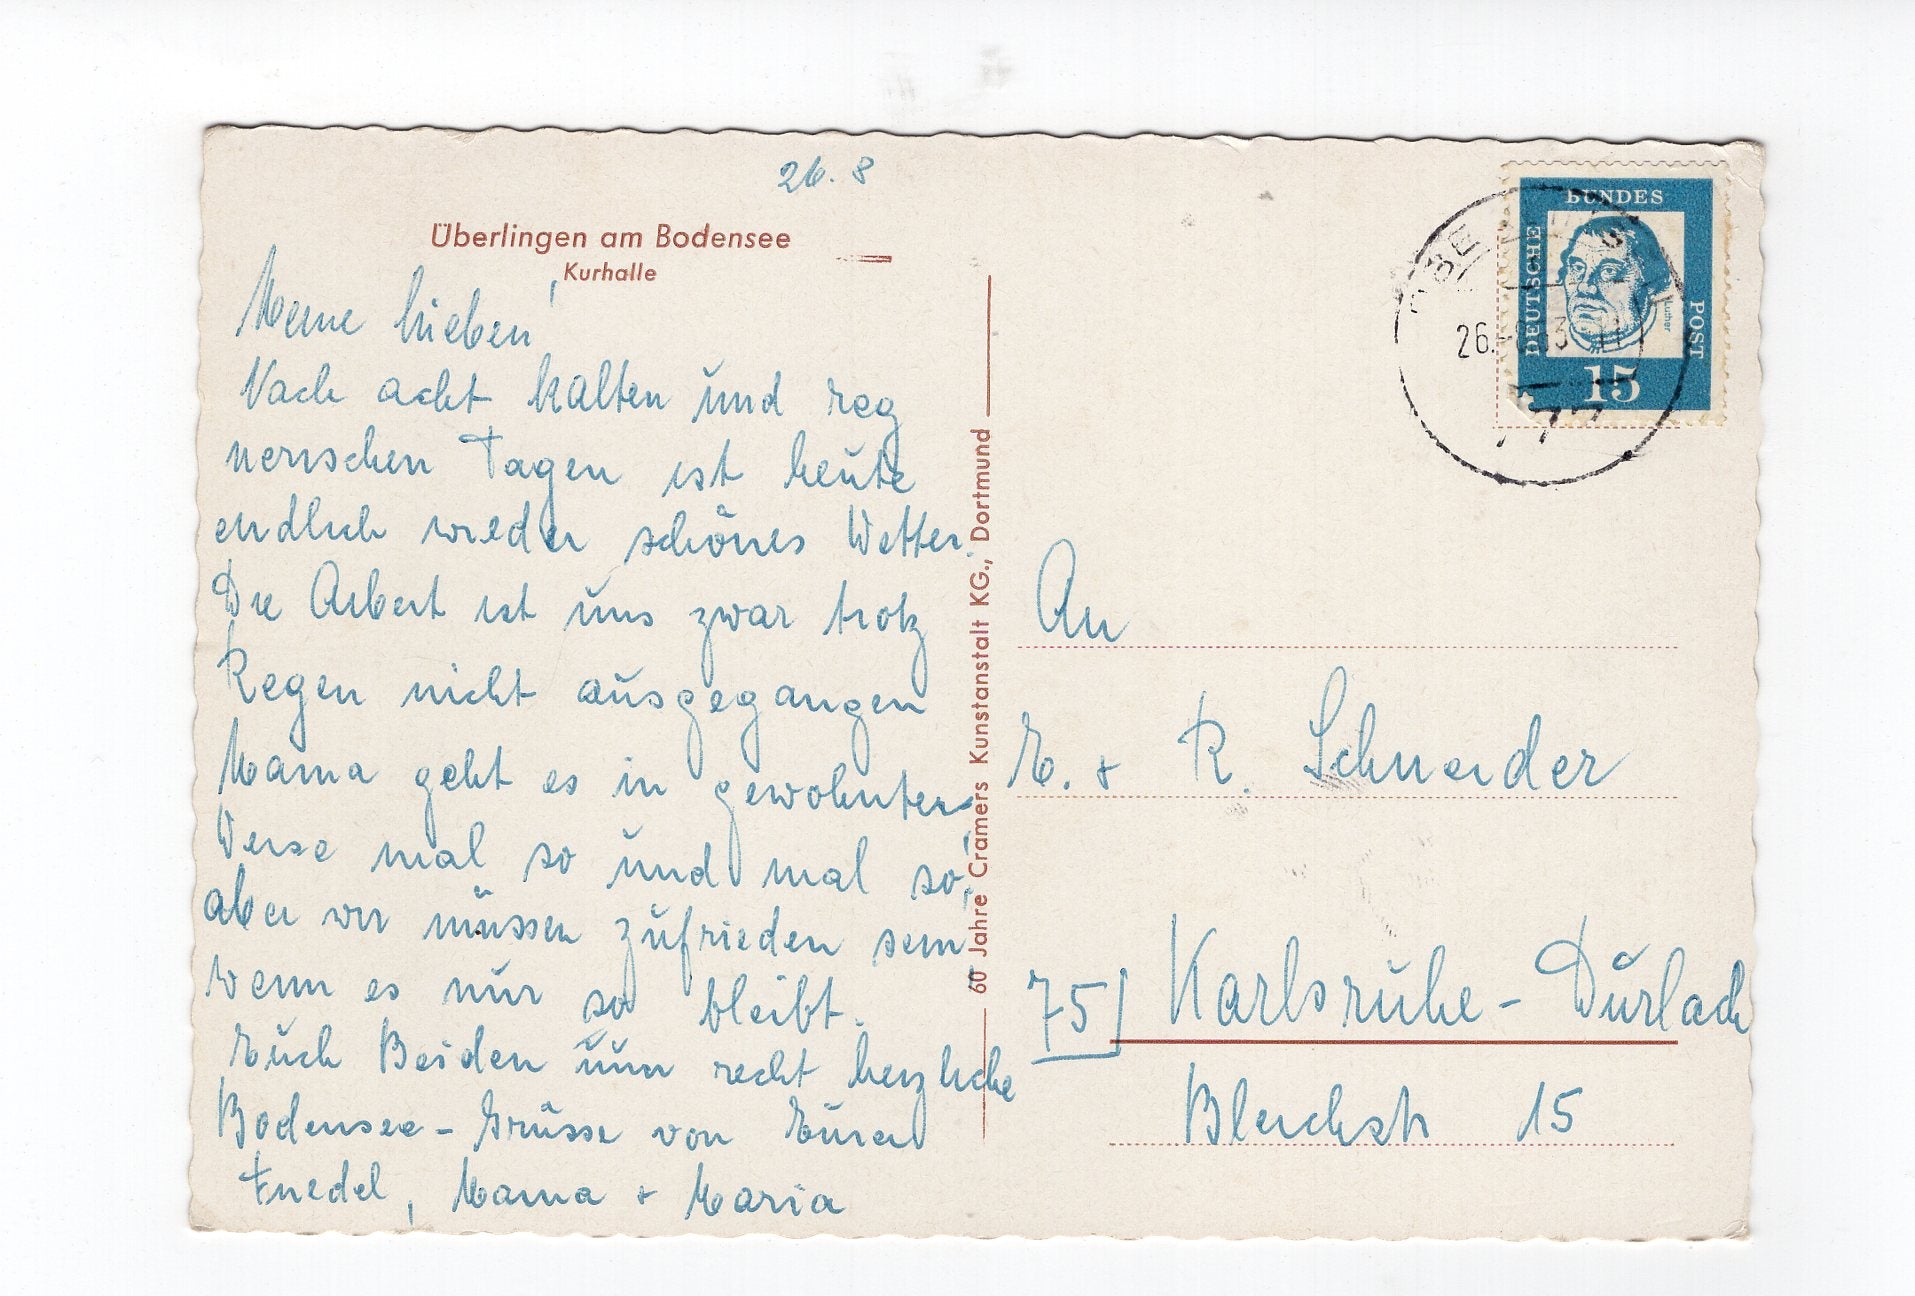 26. 8
Überlingen am Bodensee
Kurhalle
Meine Lieben!
Nach acht kalten und reg
nerischen Tagen ist heute
endlich wieder schönes Wetter.
Die Arbeit ist uns zwar trotz
Regen nicht ausgegangen
Mama geht es in gewohnter
Weise mal so und mal so!
aber wir müssen zufrieden sein
wenn es nur so bleibt.
Euch Beiden nun recht herzliche
Bodensee-Grüsse von Eurer
Friedel, Mama + Maria
60 Jahre Cramers Kunstanstalt KG., Dortmund
DEUTSCHE BUNDES POST
Luther
15
26. 63-11
777
An
E. + R. Schneider
75 Karlsruhe-Durlach
Bleichstr 15